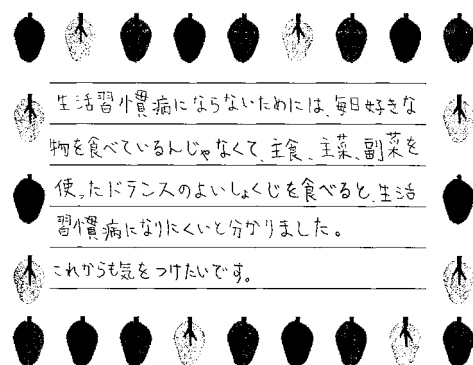 生活習慣病にならないためには、毎日好きな
物を食べているんじゃなくて、主食、主菜、副菜を
使ったドランスのよいしょくじを食べると、生活
習慣病になりにくいと分かりました。
これからも気をつけたいです。